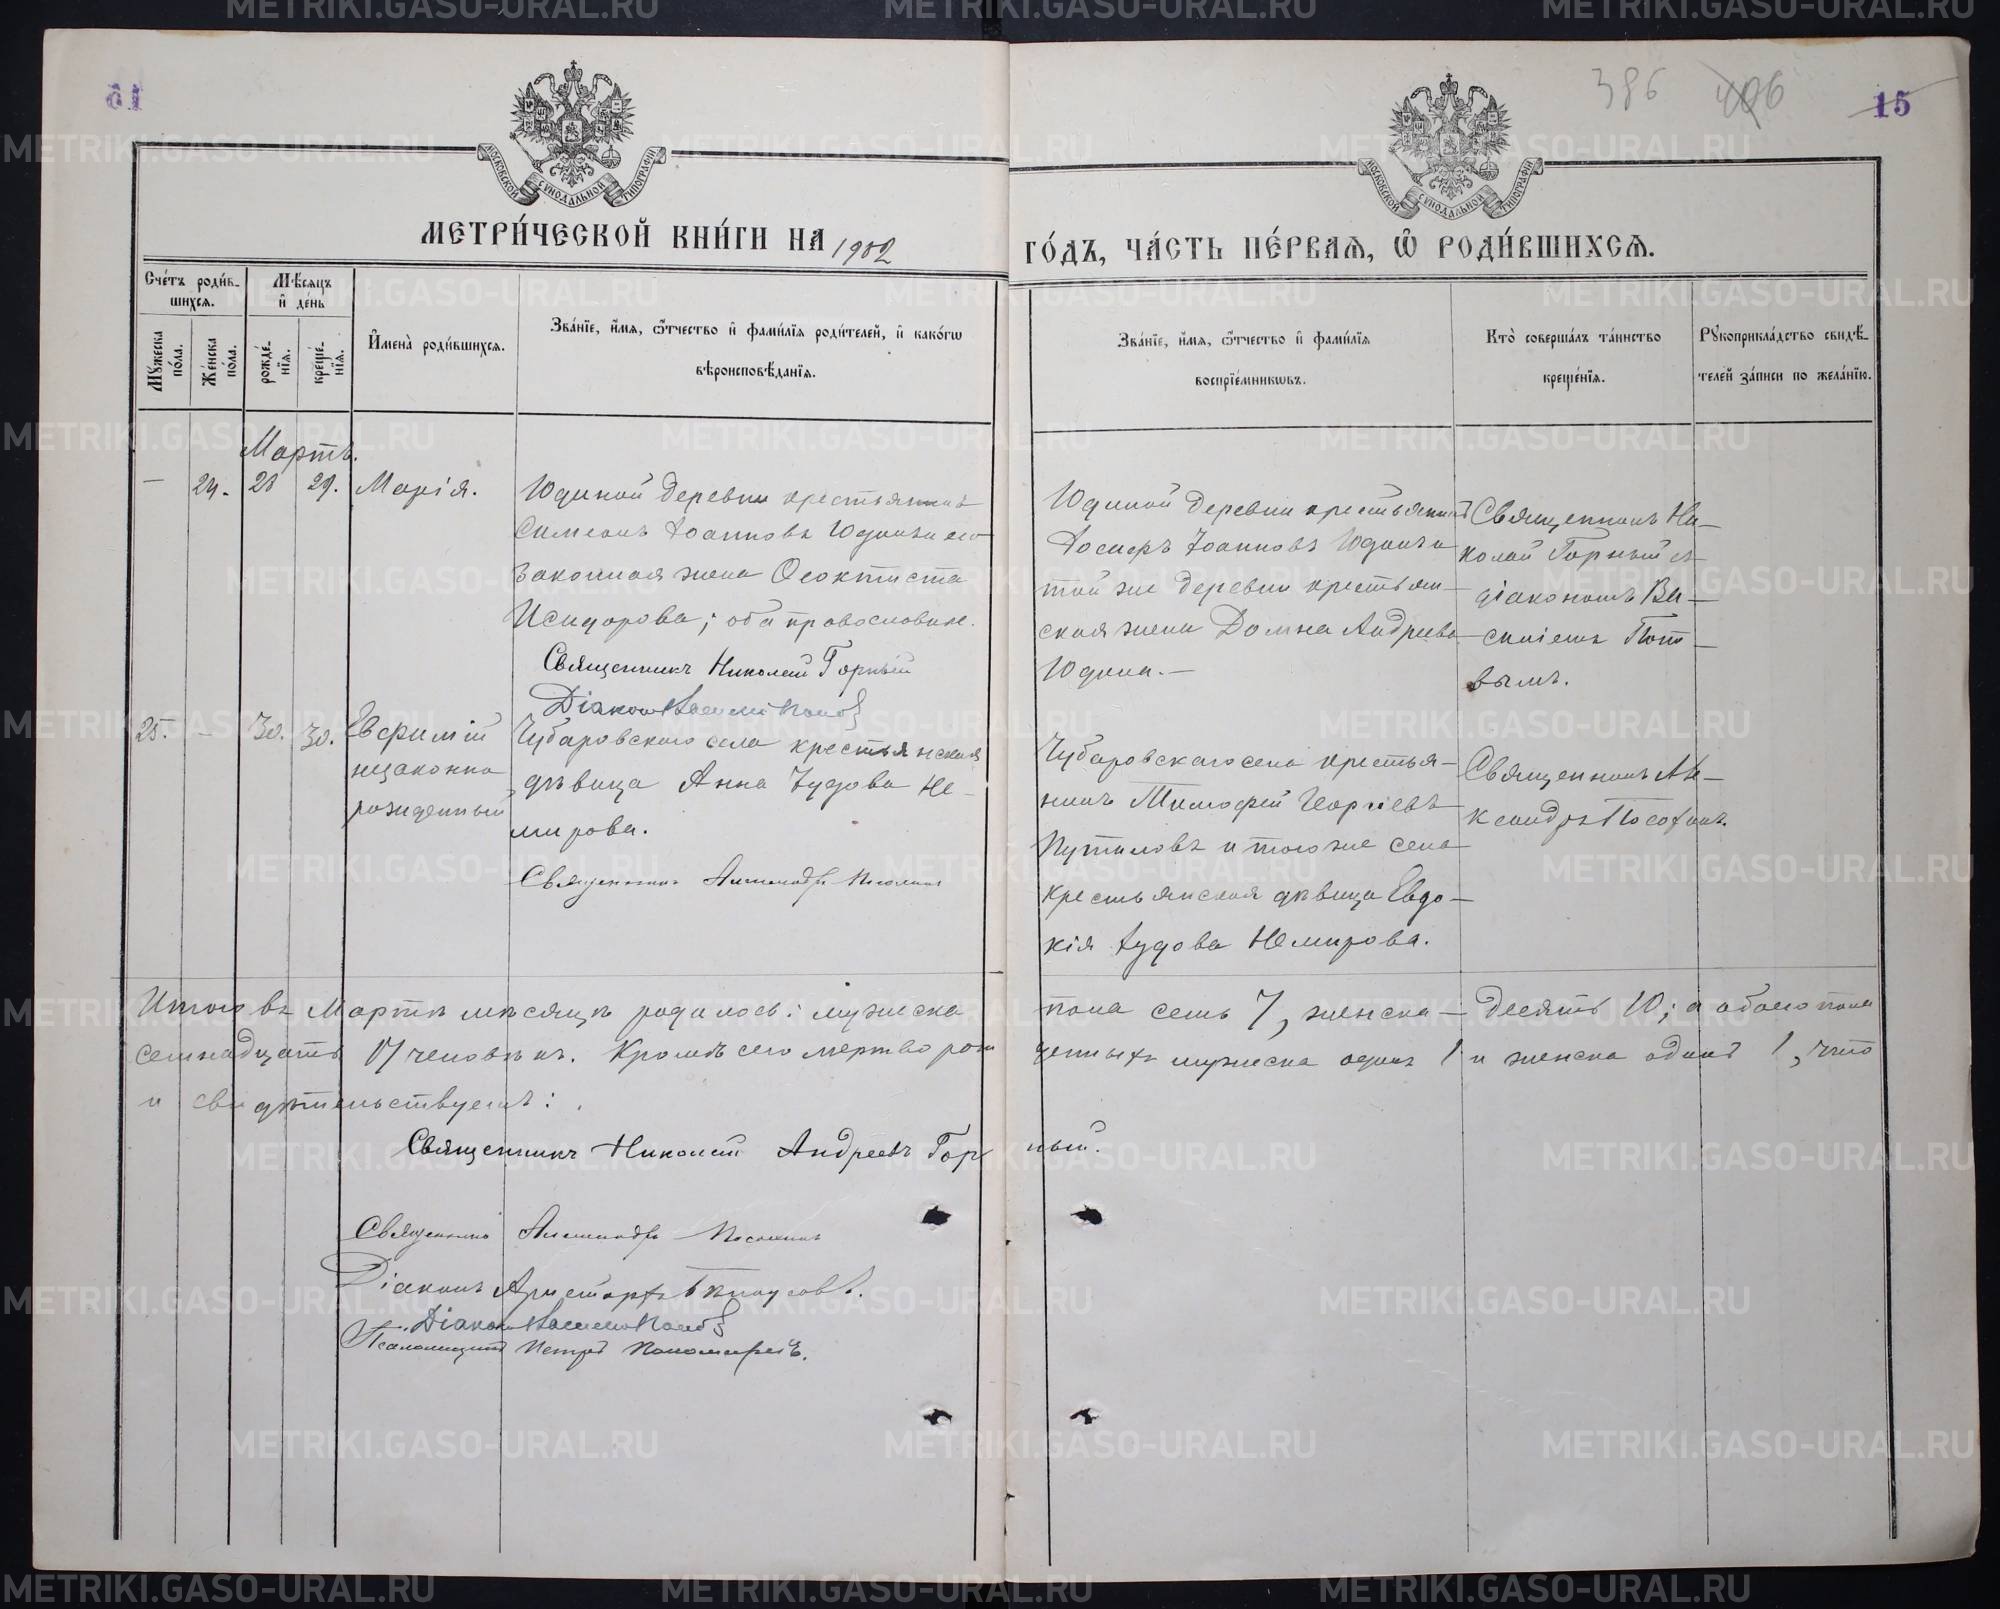 386 406 15
МЕТРИ́ЧЕСКОЙ КНИ́ГИ НА 1902 ГО́ДЪ, ЧА́СТЬ ПЕ́РВАѦ, Ѽ РОДИ́ВШИХСѦ.
Сче́тъ роди́в-
шихсѧ.
Мꙋжеска по́ла.
Же́нска по́ла.
Мѣ́сѧцъ и҆ де́нь
рожде́-
нїѧ.
креще́-
нїѧ.
И҆мена̀ роди́вшихсѧ.
Зва́нїе, и҆́мѧ, ѻ҆́тчество и҆ фами́лїѧ роди́телей, и҆ како́гѡ
вѣроисповѣ́данїѧ.
Зва́нїе, и҆́мѧ, ѻ҆́тчество и҆ фами́лїѧ
воспрїе́мникѡвъ.
Кто̀ соверша́лъ та́инство
креще́нїѧ.
Рꙋкоприкла́дство свидѣ́-
телей за́писи по жела́нїю.
Мартъ.
— 24. 28 29. Марія.
Юдиной деревни крестьянинъ
Симеонъ Іоанновъ Юдинъ и его
законная жена Ѳеоктиста
Исидорова; оба православные.
Священникъ Николай Горный
Діаконъ Василій Поповъ
Юдиной деревни крестьянинъ
Іосифъ Іоанновъ Юдинъ и
той же деревни крестьян-
ская жена Домна Андреева
Юдина.—
Священникъ Ни-
колай Горный съ
діакономъ Ва-
силіемъ Попо-
вымъ.
25. — 30. 30. Евфимій
незаконно
рожденный
Чубаровского села крестьянская
дѣвица Анна Іудова Не-
мирова.
Священникъ Александръ
Чубаровскаго села крестья-
нинъ Тимофей Георгіевъ
Путиловъ и того же села
крестьянская дѣвица Евдо-
кія Іудова Немирова.
Священникъ Але-
ксандръ
Итого въ Мартѣ мѣсяцѣ родилось: мужска пола семь 7, женска — десять 10; а обоего пола
семнадцать 17 человѣкъ. Кромѣ сего мертворож денныхъ мужска одинъ 1 и женска одинъ 1, что
и свидѣтельствуемъ:
Священникъ Николай Андреевъ Гор ный.
Священникъ Александръ
Діаконъ Аристархъ
Діаконъ Василій Поповъ
Псаломщикъ Петръ Пономаревъ.
METRIKI.GASO-URAL.RU